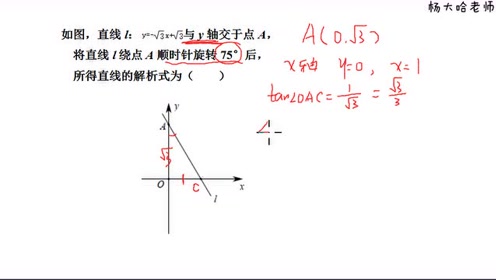 杨大哈老师
如图，直线 l：y=-√3x+√3与 y 轴交于点 A，
将直线 l 绕点 A 顺时针旋转 75°后，
所得直线的解析式为（ ）
A(0.√3)
x轴 y=0, x=1
tan∠OAC=1/√3=√3/3
y
A
√3
O
C
x
l